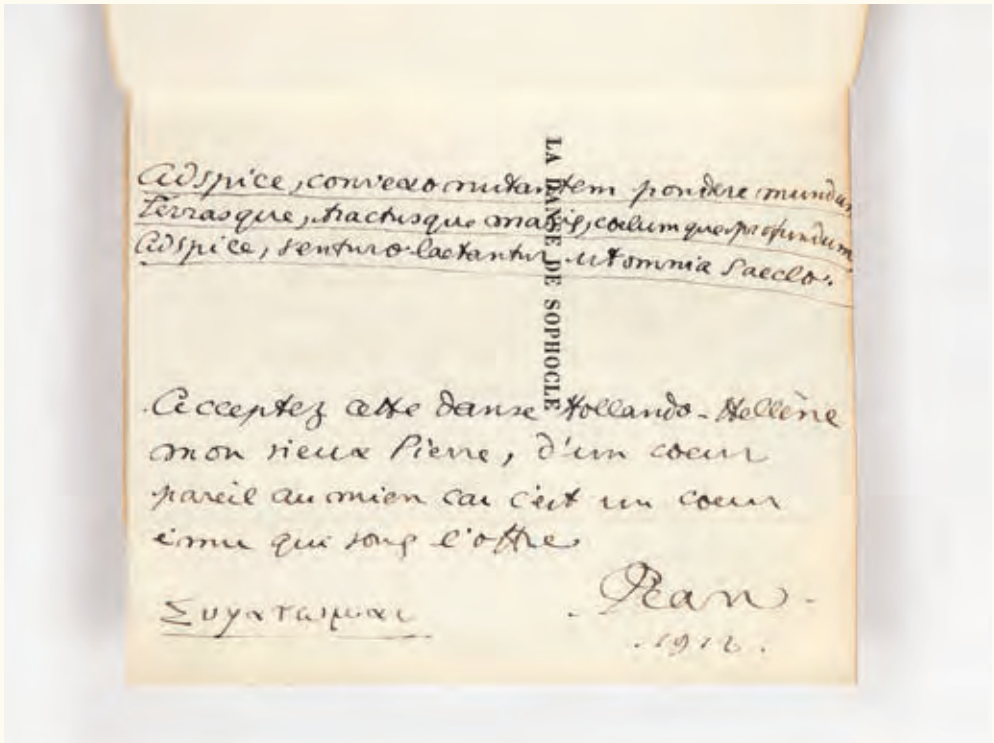 Adspice, convexo nutantem pondere mundum
Terrasque, tractusque maris, coelumque profundum
Adspice, venturo laetantur ut omnia Saeclo.
LA DANSE DE SOPHOCLE
Acceptez cette danse Hollando-Hellène
mon vieux Pierre, d'un coeur
pareil au mien car c'est un coeur
ému qui vous l'offre
Jean
.1912.